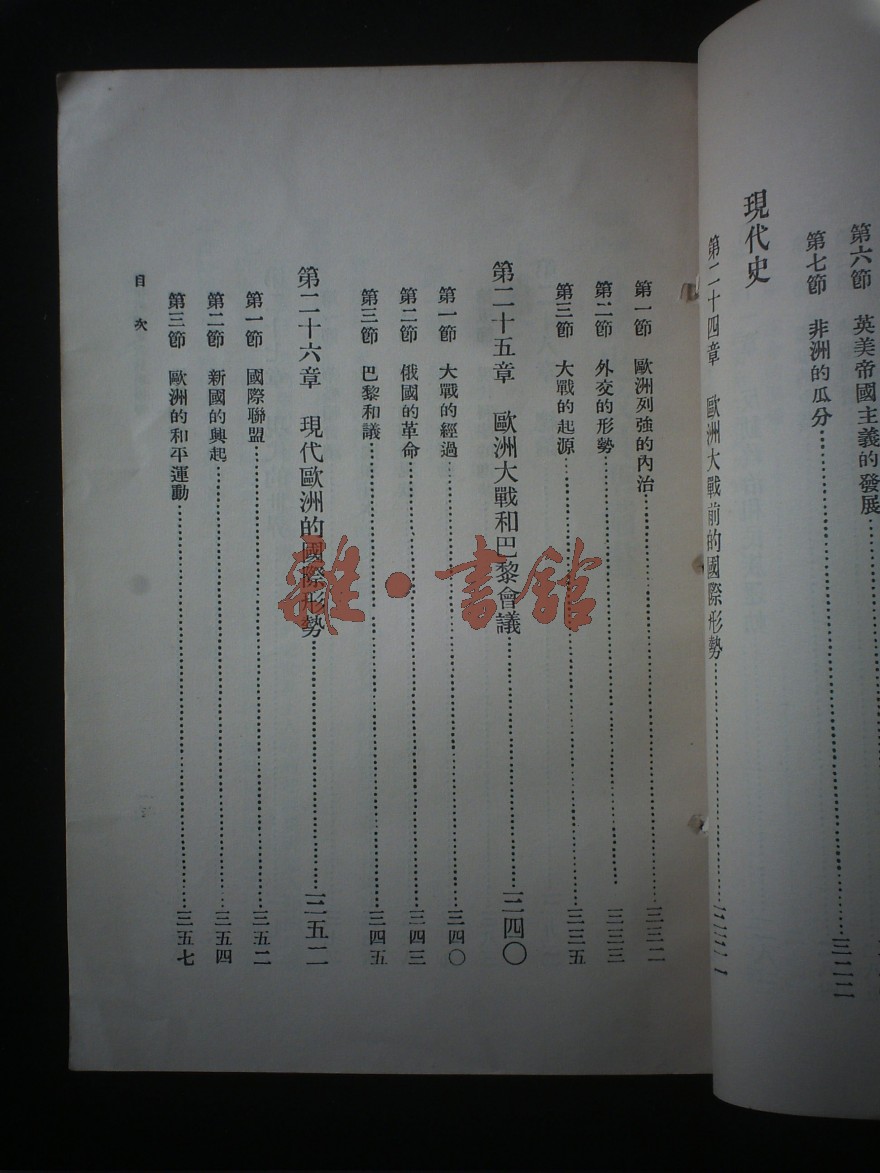 第六節　英美帝國主義的發展
第七節　非洲的瓜分……三二二
現代史
第二十四章　歐洲大戰前的國際形勢
第一節　歐洲列強的內治……三三二
第二節　外交的形勢……三三三
第三節　大戰的起源……三三五
第二十五章　歐洲大戰和巴黎會議……三四〇
第一節　大戰的經過……三四〇
第二節　俄國的革命……三四三
第三節　巴黎和議……三四五
第二十六章　現代歐洲的國際形勢……三五二
第一節　國際聯盟……三五二
第二節　新國的興起……三五四
第三節　歐洲的和平運動……三五七
目次
雜·書館